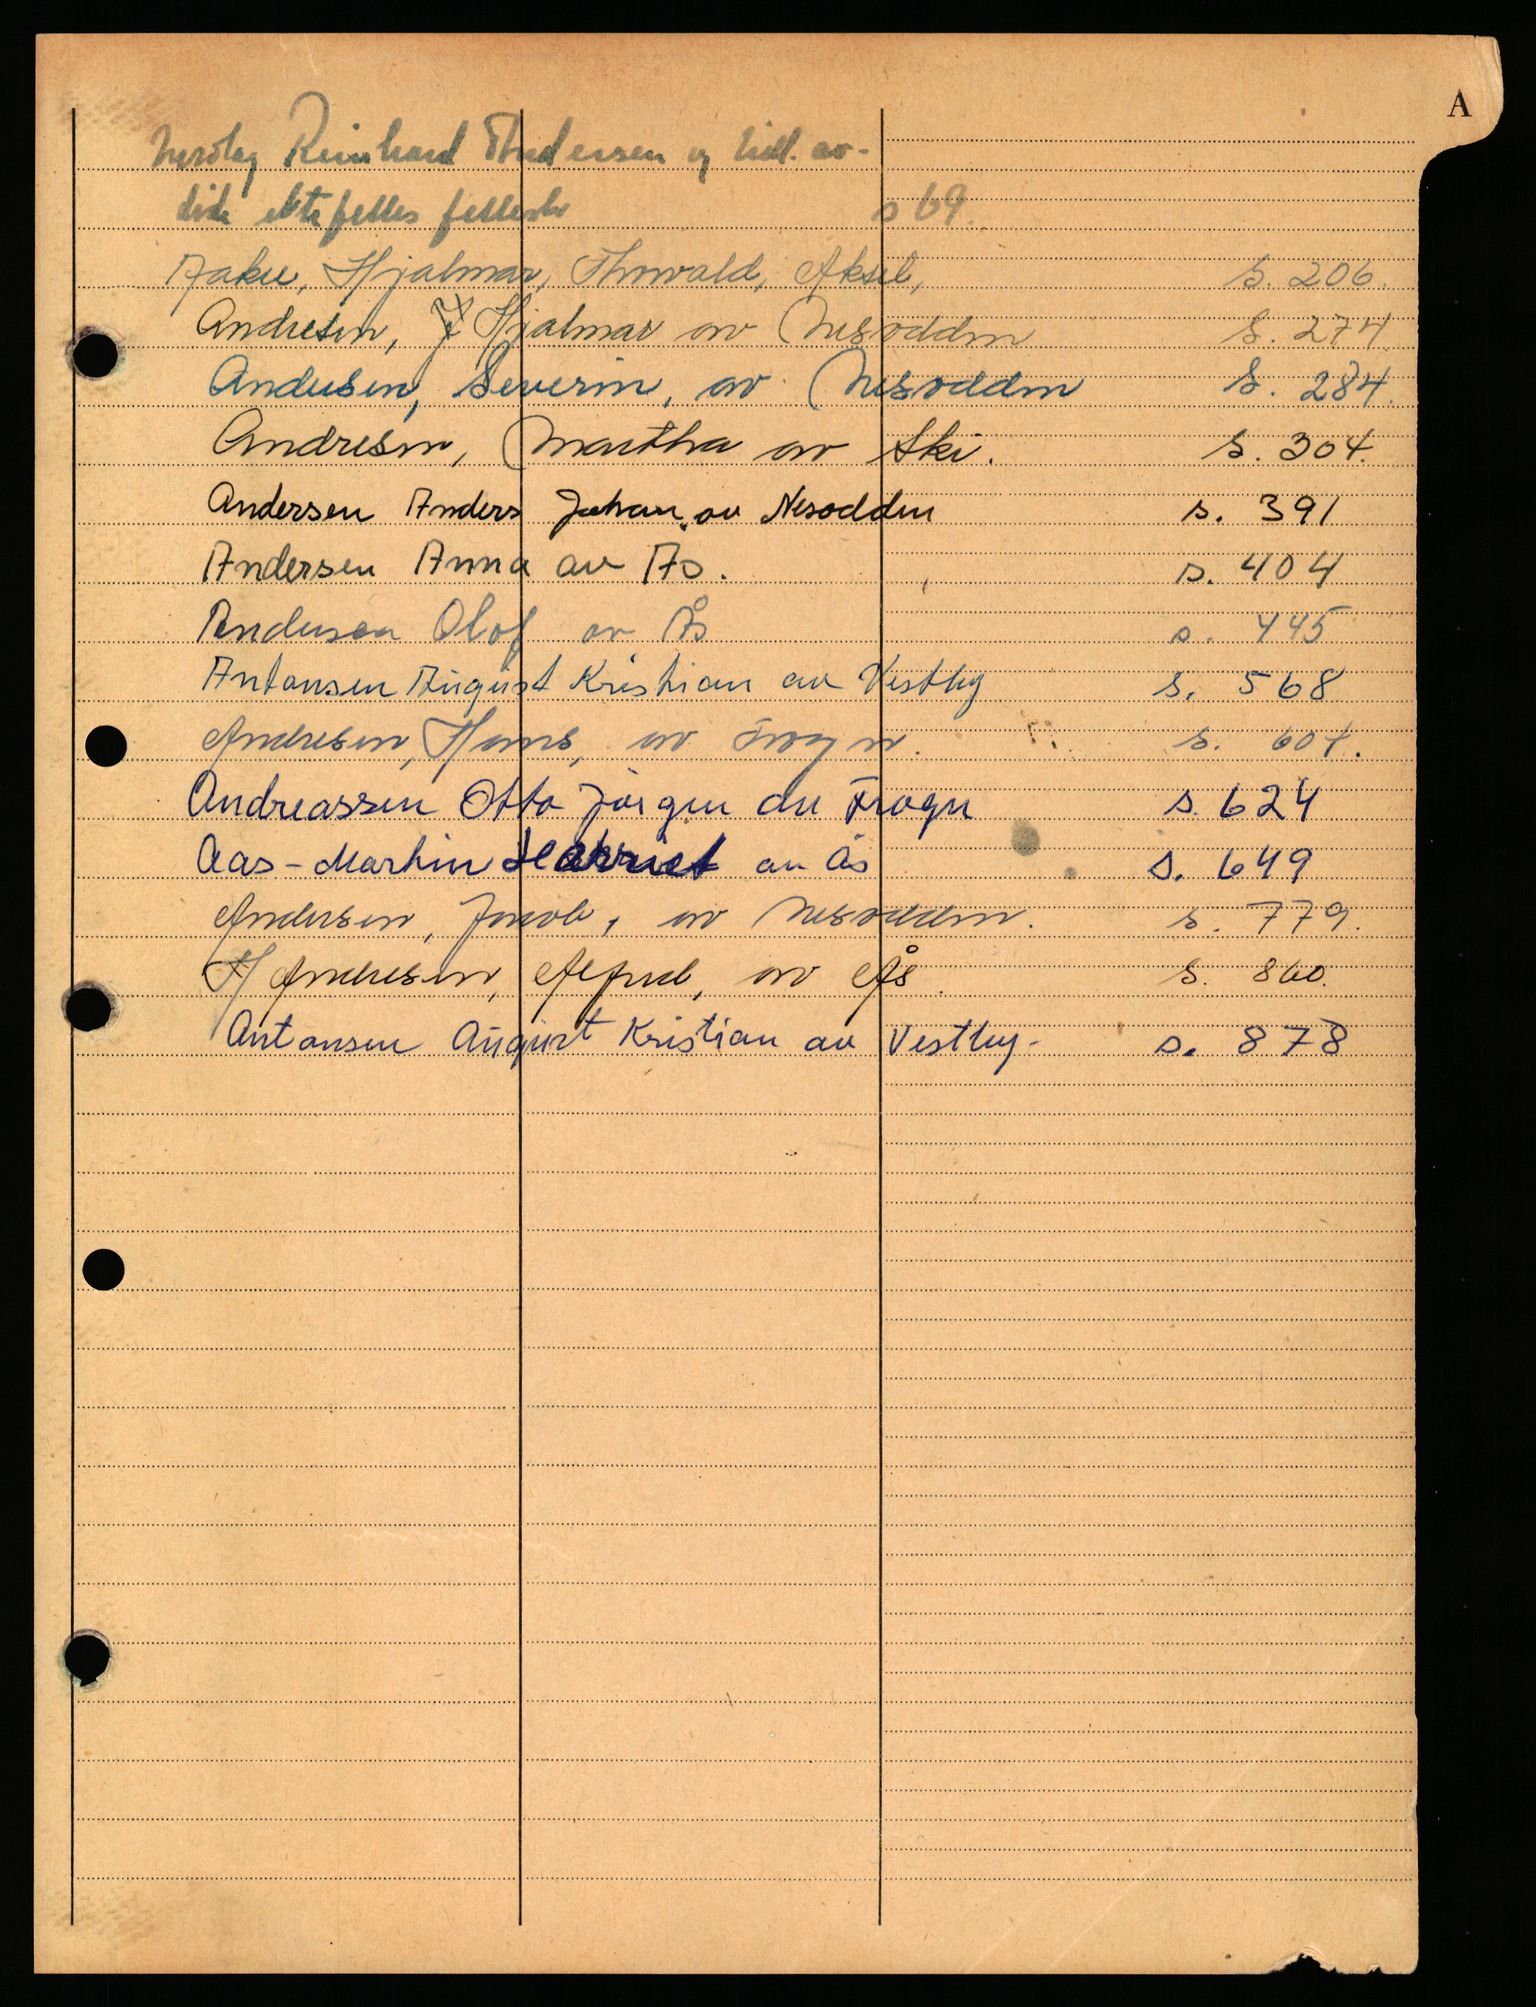 A
Reinhard Andersen og tidl. av-
døde ektefelles fellesbo s 69.
Aaker, Hjalmar, Thorvald, Aksel, s. 206.
Andresen, Hjalmar av Nesodden s. 274.
Andersen, Severin, av Nesodden s. 284.
Andresen, Martha av Ski. s. 304.
Andersen Anders Johan av Nesodden s. 391
Andersen Anna av Ås. s. 404
Andersen Olof av Ås s. 445
Antonsen August Kristian av Vestby s. 568
Andresen, Hans, av Frogn. s. 604.
Andreassen Otto Jørgen av Frogn s. 624
Aas-Martin Harriet av Ås s. 649
Andersen, Jacob, av Nesodden. s. 779.
Andresen, Alfred, av Ås. s. 860.
Antonsen August Kristian av Vestby- s. 878